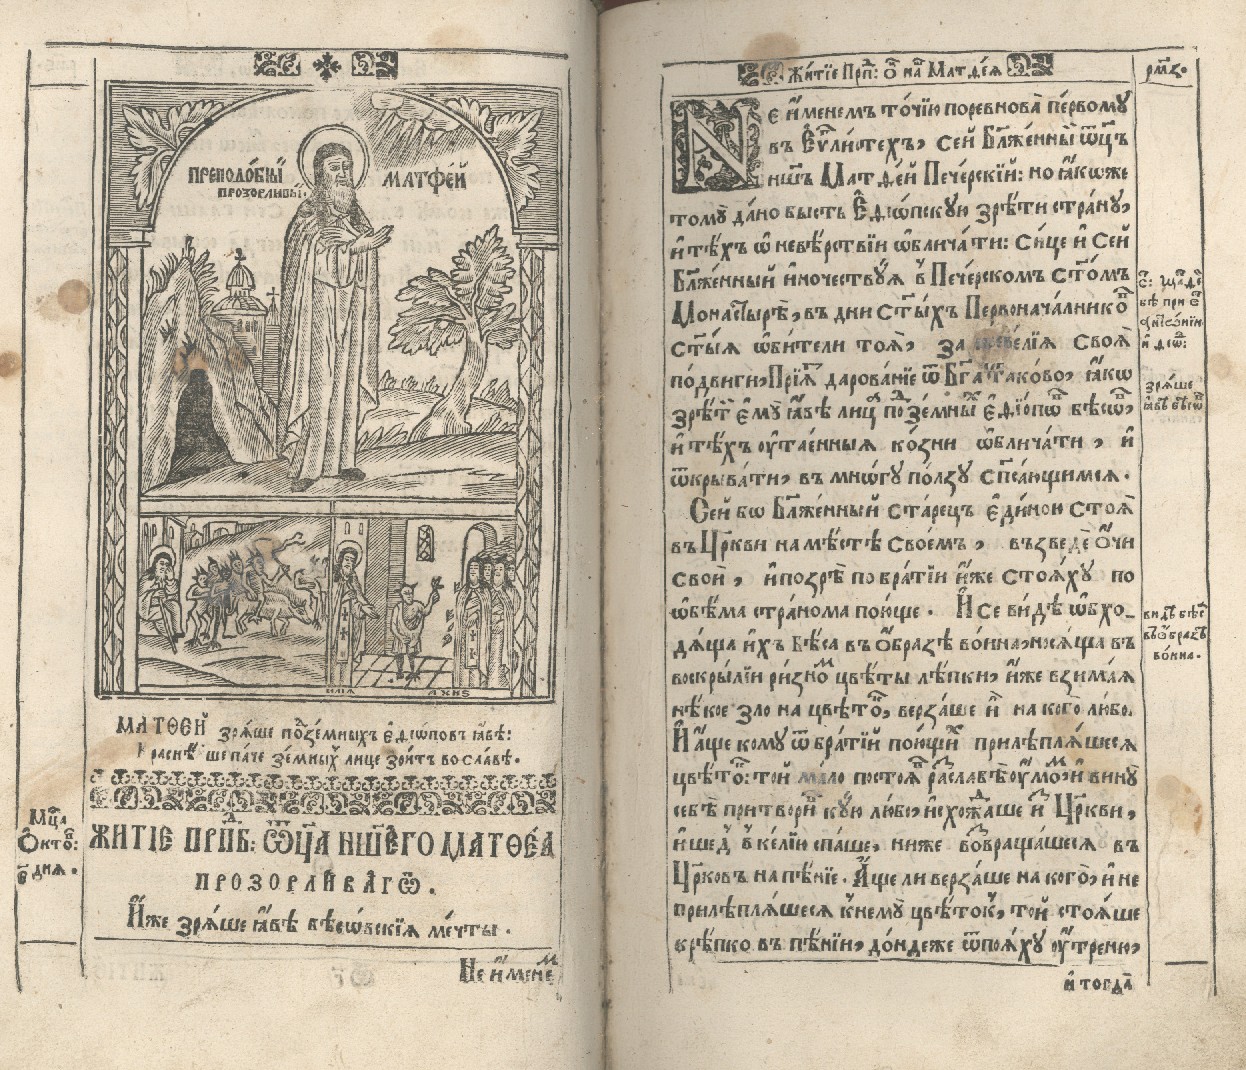 ПРЕПОДО́БНЫЙ МАТФЕ́Й
ПРОЗОРЛИВЫ́Й
ИЛІѦ АХН҃Ѕ
МАТѲЕЙ зрѧ́ше по̾зе́мныхъ є҆ѳїѡ́повъ ꙗ҆́вѣ:
Краснѣ́йше па́че зе́мных̾ лице зри́тъ во сла́вѣ.
Мц҃а
Ѻ҆кто́:
є҃ днѧ.
ЖИТІЕ ПРПⷣБ: Ѿц҃А НШ҃ЕГО МАТѲЕ́А
ПРОЗОРЛИ́ВАГѠ.
И҆́же зрѧ́ше ꙗ҆́вѣ бѣсѡ́вскїѧ мечты̀.
Не и҆́менеⷨ
Житїе Прпⷣ: Ѻ҃ на҃ Матѳе́ѧ
рм҃з.
Не и҆́менемъ то́чїю поревнова̀ пе́рвомꙋ
въ Є҆ѵⷢ҇лі́стехъ, сей Бл҃же́нный ѿц҃ъ
нш҃ъ Матѳе́й Пече́рскїй: но ꙗ҆́коже
томꙋ̀ да́но бысть Є҆ѳїѡ́пскꙋю зрѣ́ти странꙋ̀,
и҆ тѣ́хъ ѡ҆ невѣ́рствїи ѡ҆блича́ти: си́це и҆ сей
Бл҃же́нный и҆́ночествꙋѧ в̾ Пече́рскомъ ст҃о́мъ
Монастырѣ̀, въ дни ст҃ы́хъ Первонача́лникоⷡ
ст҃ы́ѧ ѡ҆би́тели тоѧ̀, за веѐлїѧ своѧ̀
по́двиги, Прїѧ́тъ дарова́нїе ѿ Бг҃а таково̀, ꙗ҆́кѡ
зрѣ́ти є҆мꙋ̀ ꙗ҆́вѣ лица̀ поⷣзе́мныⷯ є҆ѳїо́пѡⷡ бѣсѡ́въ,
и҆ тѣ́хъ оу҆тае́нныѧ ко́зни ѡ҆блича́ти, и҆
ѿкрыва́ти, въ мно́гꙋ по́лзꙋ сп҃са́ющимсѧ.
Сей бо Бл҃же́нный ста́рецъ є҆ди́ною стоѧ̀
въ Цр҃кви на мѣ́стѣ свое́мъ, възведѐ О҆́чи
своѝ, и҆ позрѣ̀ по бра́тїи и҆̀же стоѧ́хꙋ по
ѡ҆бѣ́ма стра́нома пою́ще. И҆ се ви́дѣ ѡ҆бхо_
дѧ́ща и҆́хъ Бѣ́са въ ѻ҆́бразѣ во́ина, носѧ́ща въ
воскры́лїи ри́зноⷨ цвѣ́ты лѣ́пки, и҆́же взима́ѧ
нѣ́кое ѕло̀ на цвѣто́ⷡ, верза́ше и҆̀ на кого̀ любо.
И҆ а҆́ще комꙋ̀ ѿ бра́тїй пою́щиⷯ прилѣплѧ́шесѧ
цвѣто́ⷦ: той ма́ло постоѧ́въ разслабѣ́въ оу҆мо́ⷨ и҆ винꙋ̀
себѣ̀ притвори́въ кꙋ́ю любо, и҆схожда́ше иⷥ Цр҃кви,
и҆ ше́дъ в̾ ке́лїю спа́ше, ниже воⷥвраща́шесѧ въ
Цр҃ковъ на пѣ́нїе. А҆́ще ли верза́ше на кого̀, и҆ не
прилѣплѧ́шесѧ к̾немꙋ̀ цвѣто́къ, той стоѧ́ше
крѣ́пко въ пѣ́нїи, до́ндеже ѿпоѧ́хꙋ оу҆́треню,
зрѧ́ше
видѣ̀ бѣ́са
въ ѻ҆́бразѣ
во́ина.
и҆ тогда̀